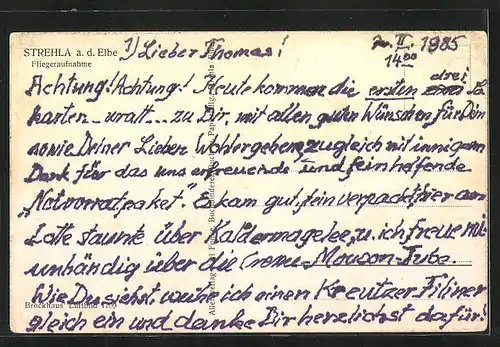 STREHLA a. d. Elbe
Fliegeraufnahme
1) Lieber Thomas!
2. II. 1985
14 00
Achtung! Achtung! Heute kommen die ersten drei
karten - uralt - zu Dir, mit allen guten Wünschen für Dein
sowie Deiner Lieben Wohlergehen, zugleich mit innigem
Dank für das uns erfreuende und feinhelfende
"Notvorratpaket". Es kam gut, fein verpackt, hier an
Lotte staunte über Kaldermagelee, u. ich freue mich
unbändig über die Creme-Mouson-Tube.
Wie Du siehst, weihe ich einen Kreutzer Filiner
gleich ein und danke Dir herzlichst dafür!
Brockhaus